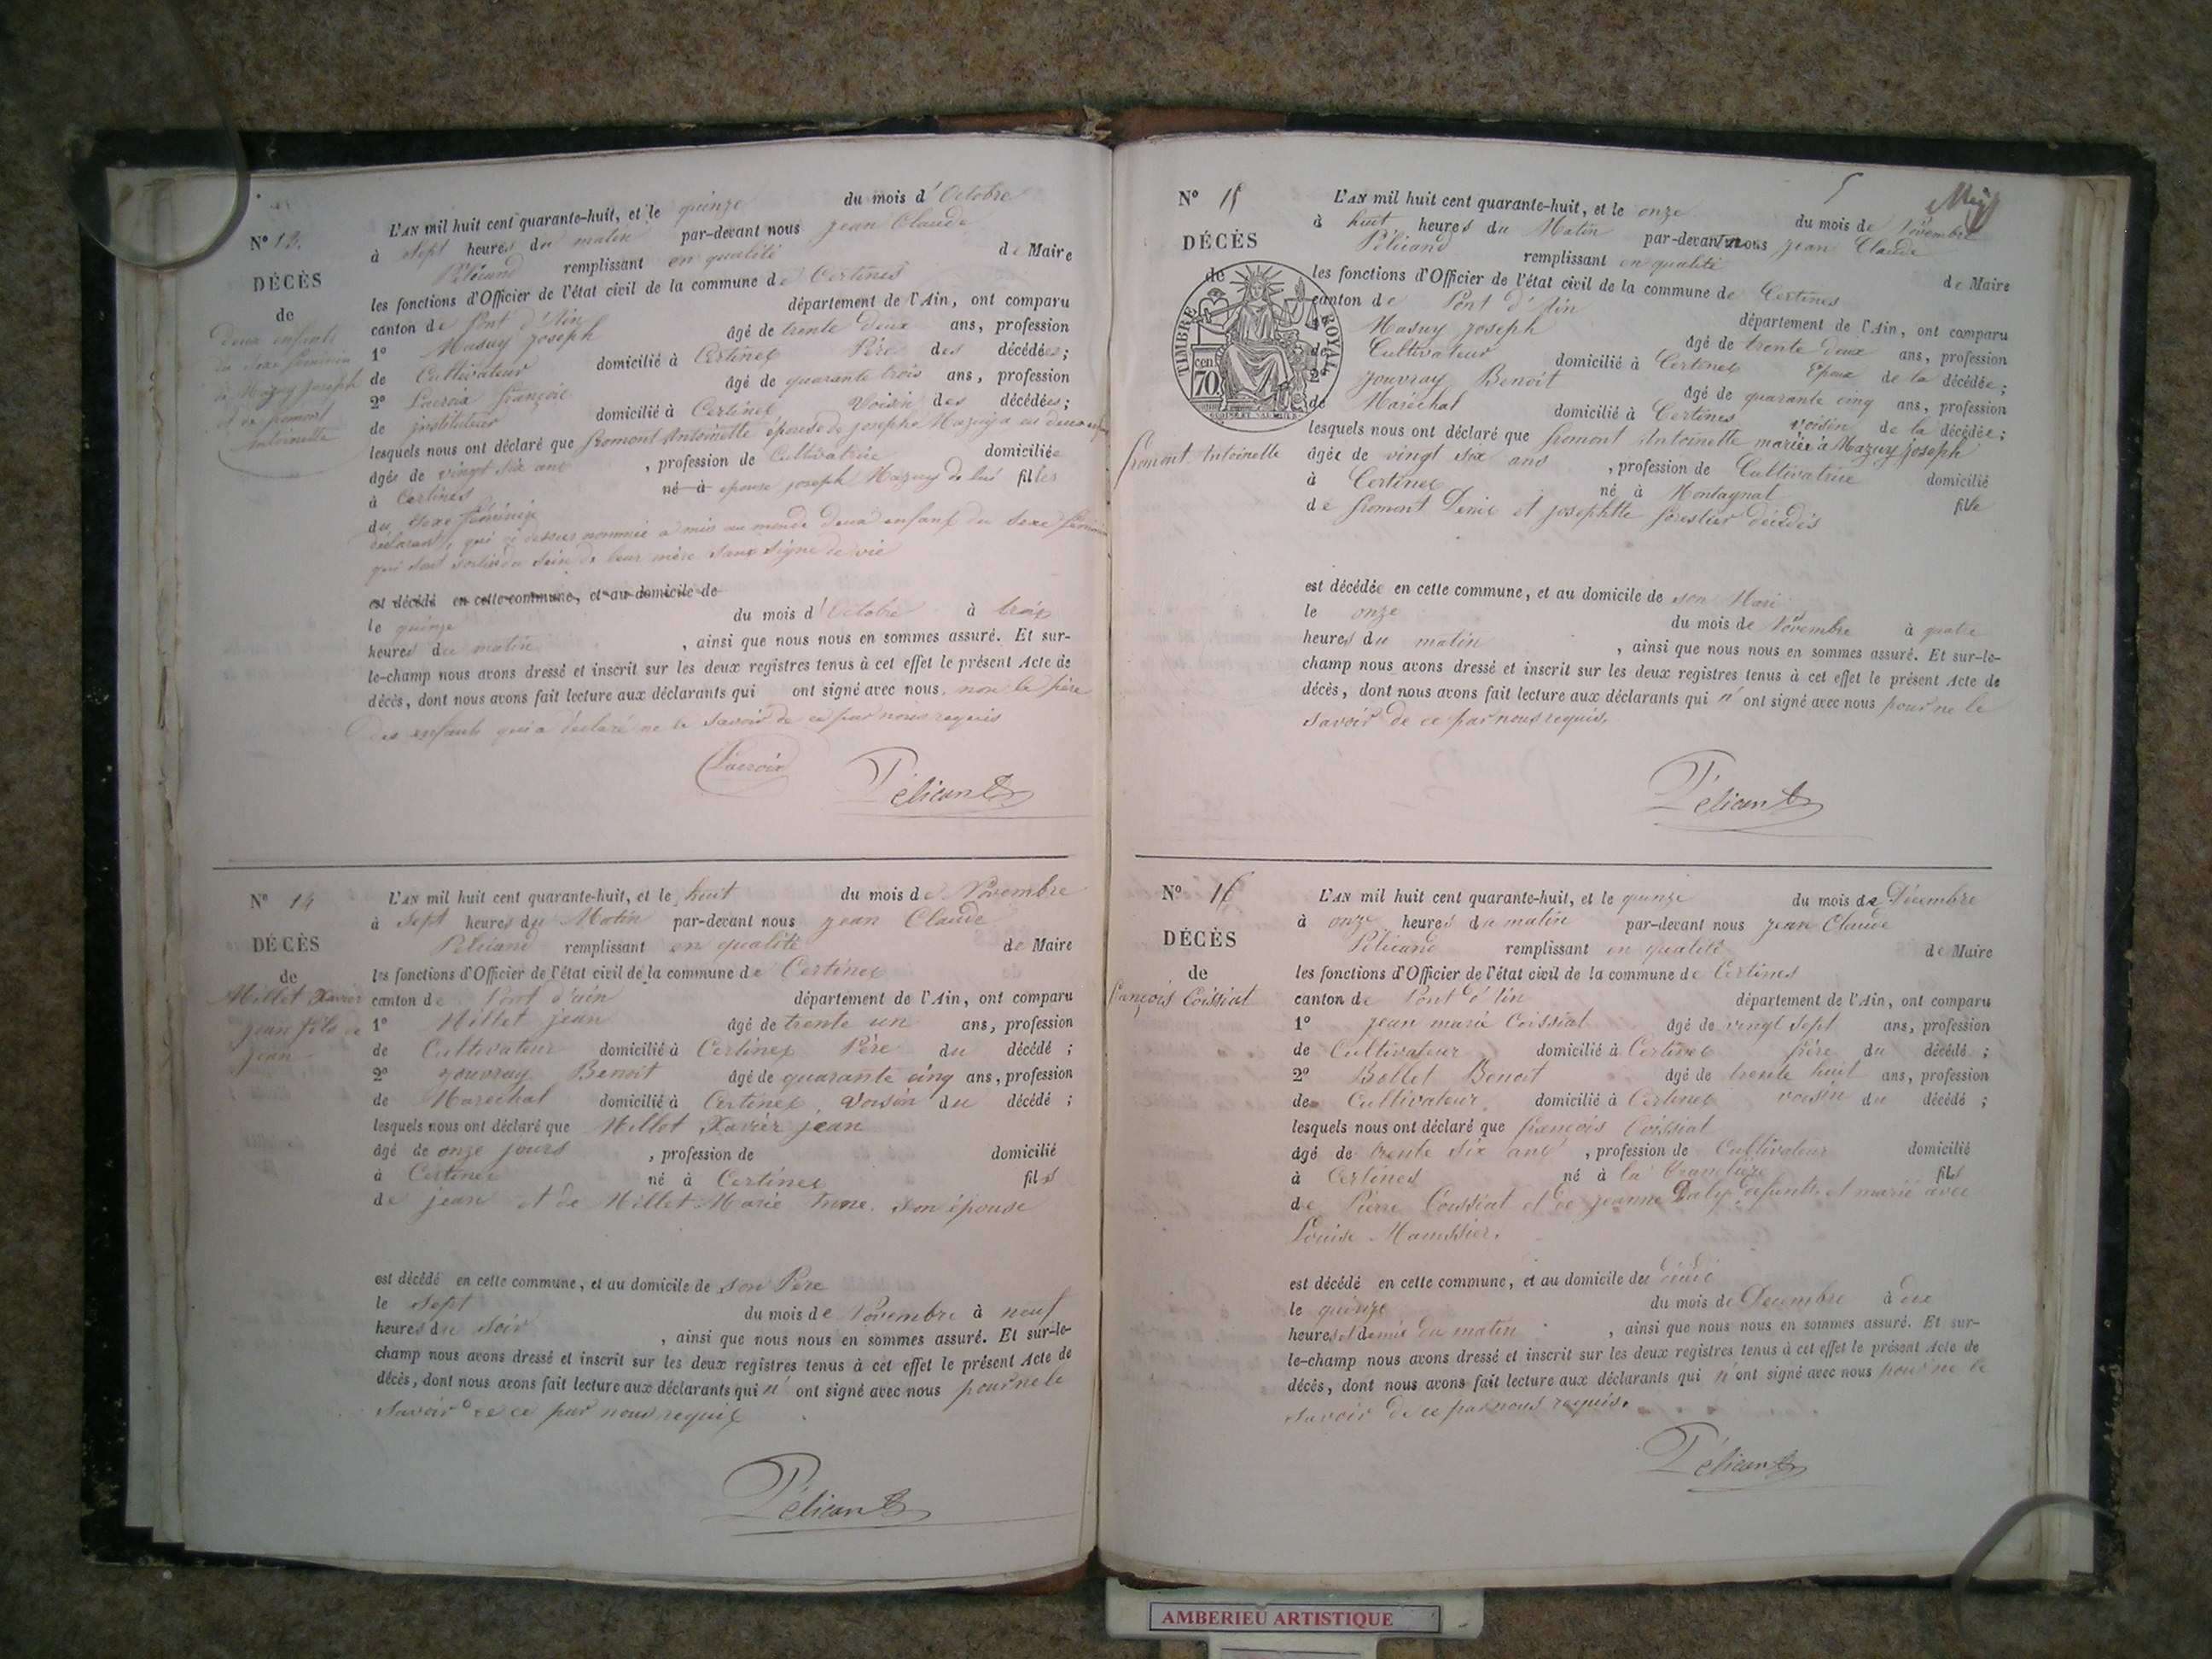 N° 13.
DÉCÈS
de
Deux enfants
du sexe féminin
de Mazuy joseph
et de fromont
antoinette
L'AN mil huit cent quarante-huit, et le quinze du mois d'Octobre
à sept heures du matin par-devant nous jean Claude
Pélicand remplissant en qualité de Maire
les fonctions d'Officier de l'état civil de la commune de Certines
canton de Pont d'Ain département de l'Ain, ont comparu
1° Masuy joseph âgé de trente deux ans, profession
de Cultivateur domicilié à Certines Père des décédées;
2° Lacroix françois âgé de quarante trois ans, profession
de instituteur domicilié à Certines Voisin des décédées;
lesquels nous ont déclaré que fromont Antoinette épouse de joseph Mazuy a eu deux
âgée de vingt six ans, profession de Cultivatrice domiciliée
à Certines né à epouse joseph Mazuy de lui filles
du sexe féminin
déclarant, qui ci dessus nommée a mis au monde deux enfant du sexe
qui sont sortis du sein de leur mère sans signe de vie
est décédé en cette commune, et au domicile de
le quinze du mois d'Octobre à trois
heures du matin, ainsi que nous nous en sommes assuré. Et sur-
le-champ nous avons dressé et inscrit sur les deux registres tenus à cet effet le présent Acte de
décès, dont nous avons fait lecture aux déclarants qui ont signé avec nous, non le père
des enfants qui a déclaré ne le savoir de ce par nous requis
Lacroix
Pélicand
N° 14
DÉCÈS
de
Millet Xavier
jean fils de
jean
L'AN mil huit cent quarante-huit, et le huit du mois de Novembre
à sept heures du Matin par-devant nous jean Claude
Pélicand remplissant en qualité de Maire
les fonctions d'Officier de l'état civil de la commune de Certines
canton de Pont d'ain département de l'Ain, ont comparu
1° Millet jean âgé de trente un ans, profession
de Cultivateur domicilié à Certines Père du décédé;
2° Jouvray Benoit âgé de quarante cinq ans, profession
de Marechal domicilié à Certines, Voisin du décédé;
lesquels nous ont déclaré que Millet Xavier jean
âgé de onze jours, profession de domicilié
à Certines né à Certines fils
de jean et de Millet Marie son épouse
est décédé en cette commune, et au domicile de son Père
le sept du mois de Novembre à neuf
heures du soir, ainsi que nous nous en sommes assuré. Et sur-le-
champ nous avons dressé et inscrit sur les deux registres tenus à cet effet le présent Acte de
décès, dont nous avons fait lecture aux déclarants qui n'ont signé avec nous pour ne le
savoir de ce par nous requis
Pélicand
N° 15
DÉCÈS
de
TIMBRE ROYAL
70 cen
fromont Antoinette
L'AN mil huit cent quarante-huit, et le onze du mois de Novembre
à huit heures du Matin par-devant nous jean Claude
Pélicand remplissant en qualité de Maire
les fonctions d'Officier de l'état civil de la commune de Certines
canton de Pont d'Ain département de l'Ain, ont comparu
1° Masuy joseph âgé de trente deux ans, profession
de Cultivateur domicilié à Certines Epoux de la décédée;
2° Jouvray Benoit âgé de quarante cinq ans, profession
de Maréchal domicilié à Certines voisin de la décédée;
lesquels nous ont déclaré que fromont Antoinette mariée à Mazuy joseph
âgée de vingt six ans, profession de Cultivatrice domicilié
à Certines né à Montagnat fille
de fromont Denis et josephtte forestier décédés
est décédée en cette commune, et au domicile de son Mari
le onze du mois de Novembre à quatre
heures du matin, ainsi que nous nous en sommes assuré. Et sur-le-
champ nous avons dressé et inscrit sur les deux registres tenus à cet effet le présent Acte de
décès, dont nous avons fait lecture aux déclarants qui n'ont signé avec nous pour ne le
savoir de ce par nous requis.
Pélicand
N° 16
DÉCÈS
de
françois Coissiat
L'AN mil huit cent quarante-huit, et le quinze du mois de Décembre
à onze heures du matin par-devant nous jean Claude
Pélicand remplissant en qualité de Maire
les fonctions d'Officier de l'état civil de la commune de Certines
canton de Pont d'Ain département de l'Ain, ont comparu
1° jean marie Coissiat âgé de vingt sept ans, profession
de Cultivateur domicilié à Certines frère du décédé;
2° Bollet Benoit âgé de trente huit ans, profession
de Cultivateur domicilié à Certines voisin du décédé;
lesquels nous ont déclaré que françois Coissiat
âgé de trente six ans, profession de Cultivateur domicilié
à Certines né à la fils
de Pierre Coissiat et de jeanne defunts et marié avec
Louise
est décédé en cette commune, et au domicile du
le quinze du mois de Decembre à
heures et demie du matin, ainsi que nous nous en sommes assuré. Et sur-
le-champ nous avons dressé et inscrit sur les deux registres tenus à cet effet le présent Acte de
décès, dont nous avons fait lecture aux déclarants qui n'ont signé avec nous pour ne le
savoir de ce par nous requis.
Pélicand
AMBERIEU ARTISTIQUE